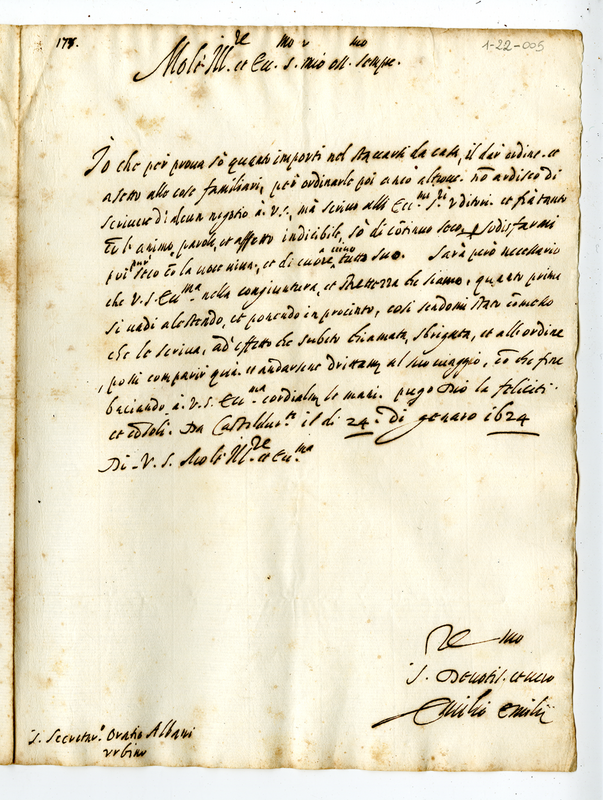 178.
1-22-005
Molt' Ill.re et Ecc.mo s.r mio oss.mo sempre.
Io che per prova sò quanto importi nel staccarsi da casa, il dar ordine et
asetto alle cose familiari, per ordinarle poi anco altrove. nõ ardisco di
scriverle di alcun negotio à V.S., mà scrivo alli Ecc.mi S.ri Uditori. et frà tanto
cõ l'animo, parole, et affetto indicibile, sò di cõtinuo seco, et sodisfarmi
poi seco cõ la voce viva, et di cuore tutto suo. Sarà però necessario
che V.S. Ecc.ma nella congiuntura, et strettezza che siamo, quanto prima
si vadi alestendo, et ponendo in procinto, così sendomi stato cõmesso
che le scriva, ad'effetto che subito chiamata, sbrigata, et all'ordine
possi comparir quà. et andarsene drittam.te al suo viaggio, cõ che fine
baciando à V.S. Ecc.ma cordialm.te le mani. prego Dio la feliciti
et cõsoli. Da Casteldur.te il di 24. di genaro 1624
Di V.S. Molt' Ill.re et Ecc.ma
S. Devotis.mo et vero
Emilio Emilii
S. Secretar.o Oratio Albani
Urbino